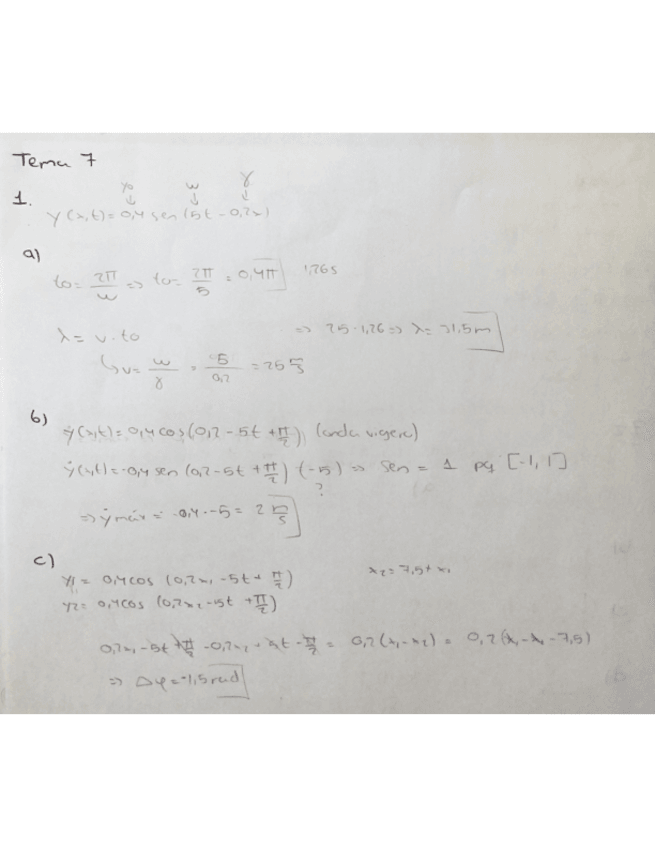 Tema 7
y₀ w γ
↓ ↓ ↓
1. y(x,t)=0,4 sen (5t - 0,2x)
a)
to = 2π/w => to = 2π/5 = 0,4π 1,26s
λ = v·to => 25·1,26 => λ = 31,5m
↳ v = w/γ = 5/0,2 = 25 m/s
b) ẏ(x,t)=0,4 cos(0,2 - 5t + π/2)
ẏ(x,t)=-0,4 sen (0,2 - 5t + π/2) (-5) => sen = 1 pq [-1, 1]
?
=> ẏmáx = -0,4·-5 = 2 m/s
c)
y1 = 0,4cos (0,2x₁ - 5t + π/2) x₂ = 7,5 + x₁
y2 = 0,4cos (0,2x₂ - 5t + π/2)
0,2x₁ - 5t + π/2 - 0,2x₂ + 5t - π/2 = 0,2(x₁-x₂) = 0,2(x₁-x₁-7,5)
=> Δφ = -1,5rad